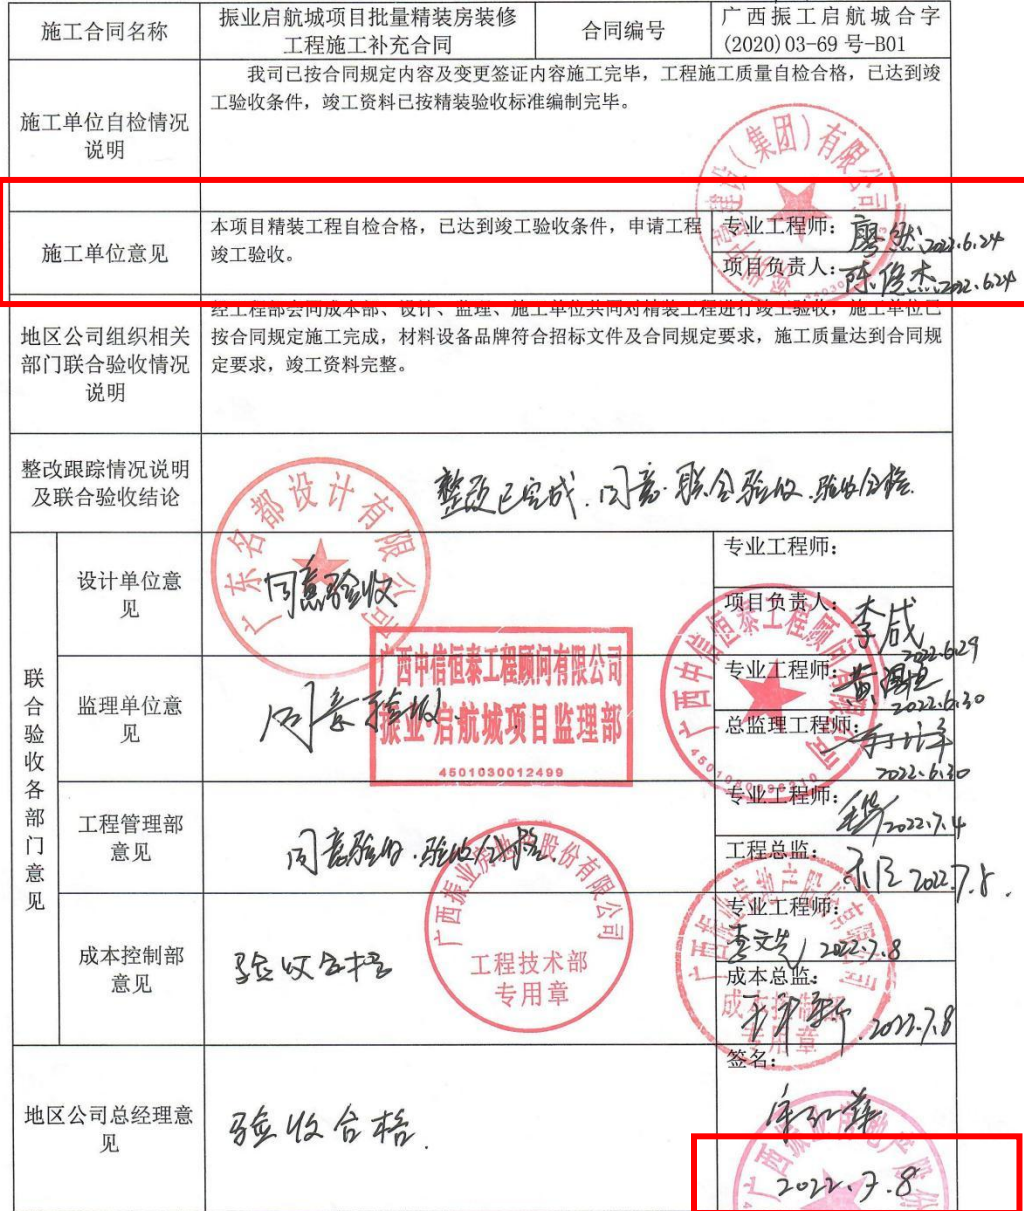 施工合同名称
振业启航城项目批量精装房装修
工程施工补充合同
合同编号
广西振工启航城合字
(2020)03-69 号-B01
施工单位自检情况
说明
我司已按合同规定内容及变更签证内容施工完毕，工程施工质量自检合格，已达到竣
工验收条件，竣工资料已按精装验收标准编制完毕。
施工单位意见
本项目精装工程自检合格，已达到竣工验收条件，申请工程
竣工验收。
专业工程师：
2022.6.24
项目负责人：
陈俊杰 2022.6.24
地区公司组织相关
部门联合验收情况
说明
经工程部会同成本部、设计、监理、施工单位共同对精装工程进行竣工验收，施工单位已
按合同规定施工完成，材料设备品牌符合招标文件及合同规定要求，施工质量达到合同规
定要求，竣工资料完整。
整改跟踪情况说明
及联合验收结论
整改已完成.同意联合验收.验收合格.
联合验收各部门意见
设计单位意
见
同意验收
广东名都设计有限公司
专业工程师：
项目负责人：
李成
2022.6.29
监理单位意
见
同意验收.
广西中信恒泰工程顾问有限公司
振业·启航城项目监理部
4501030012499
广西中信恒泰工程顾问有限公司
专业工程师：
2022.6.30
总监理工程师：
2022.6.30
工程管理部
意见
同意验收.验收合格.
广西振业房地产股份有限公司
工程技术部
专用章
专业工程师：
2022.7.4
工程总监：
2022.7.8.
成本控制部
意见
验收合格
专业工程师：
2022.7.8
成本总监：
2022.7.8
广西振业房地产股份有限公司
成本控制部
专用章
地区公司总经理意
见
验收合格.
签名：
2022.7.8